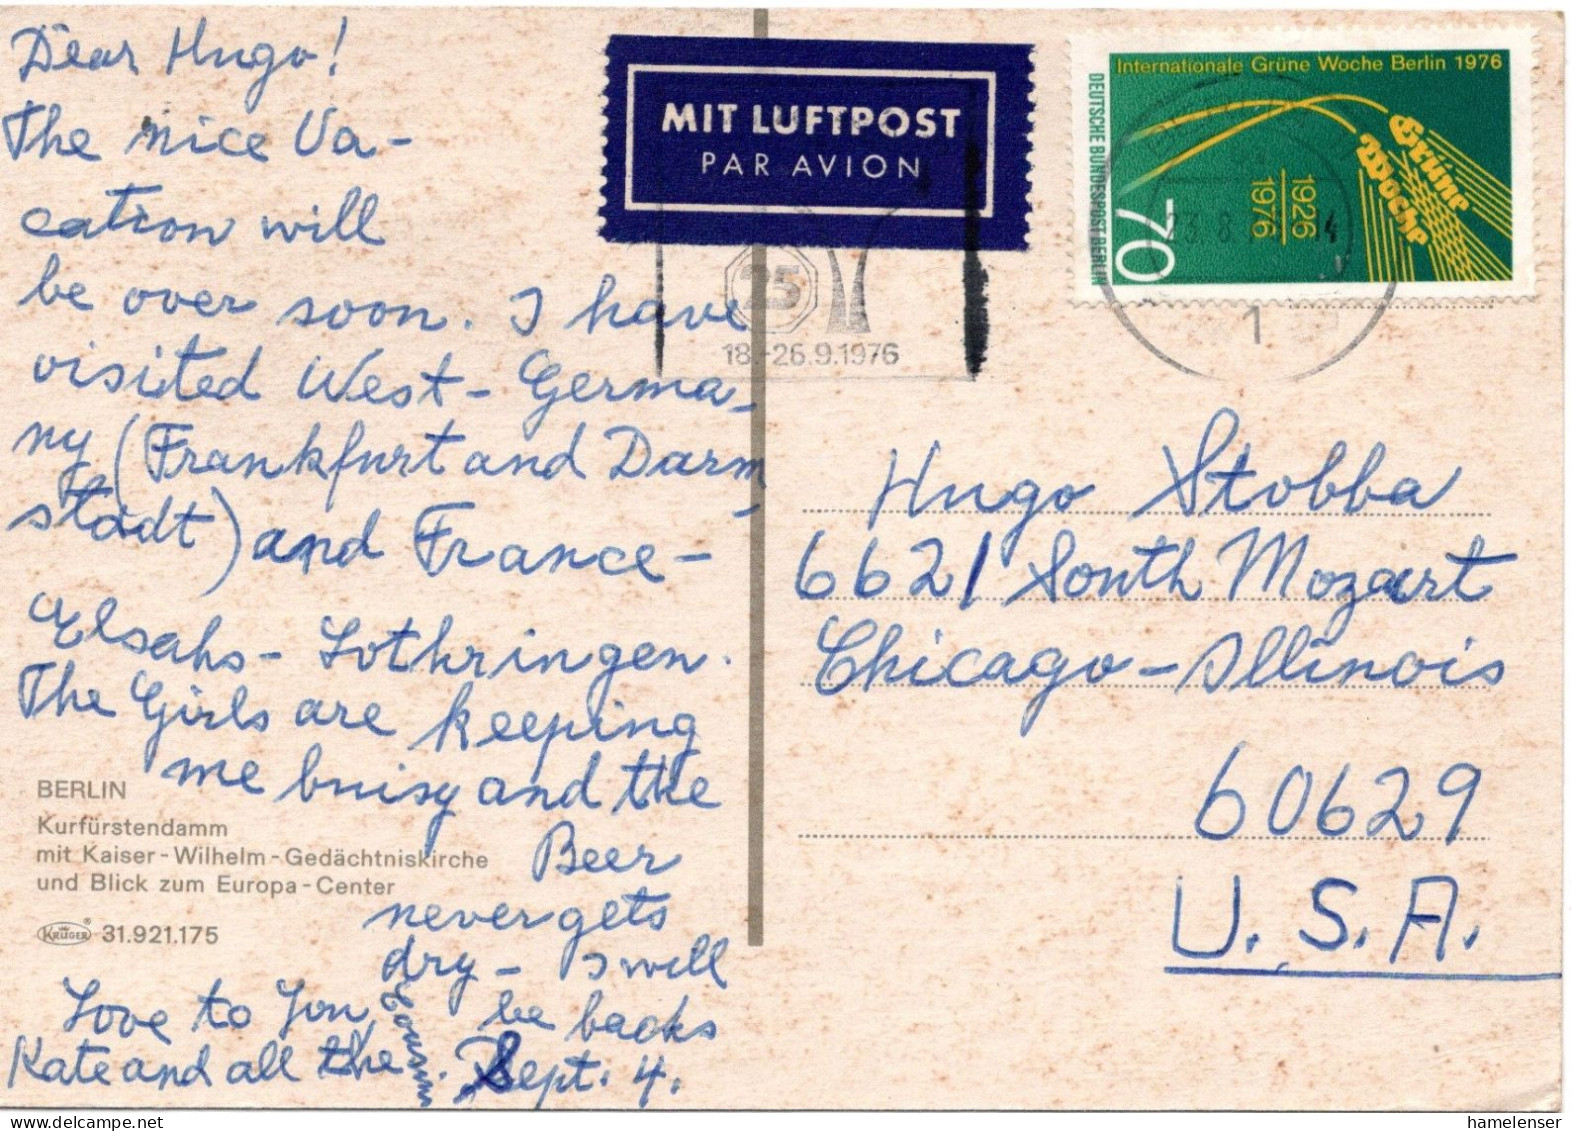 Dear Hugo!
The nice Va-
cation will
be over soon. I have
visited West-Germa-
ny (Frankfurt and Darm
stadt) and France-
Elsahs-Lothringen.
The Girls are keeping
me buisy and the
Beer
never gets
dry- I will
be backs
Sept. 4.
Love to you,
Kate and all the
BERLIN
Kurfürstendamm
mit Kaiser-Wilhelm-Gedächtniskirche
und Blick zum Europa-Center
KRÜGER® 31.921.175
MIT LUFTPOST
PAR AVION
25
18.-26.9.1976
Internationale Grüne Woche Berlin 1976
DEUTSCHE BUNDESPOST BERLIN
70
1926
1976
Grüne
Woche
1
Hugo Stobba
6621 South Mozart
Chicago-Illinois
60629
U.S.A.
hamelenser